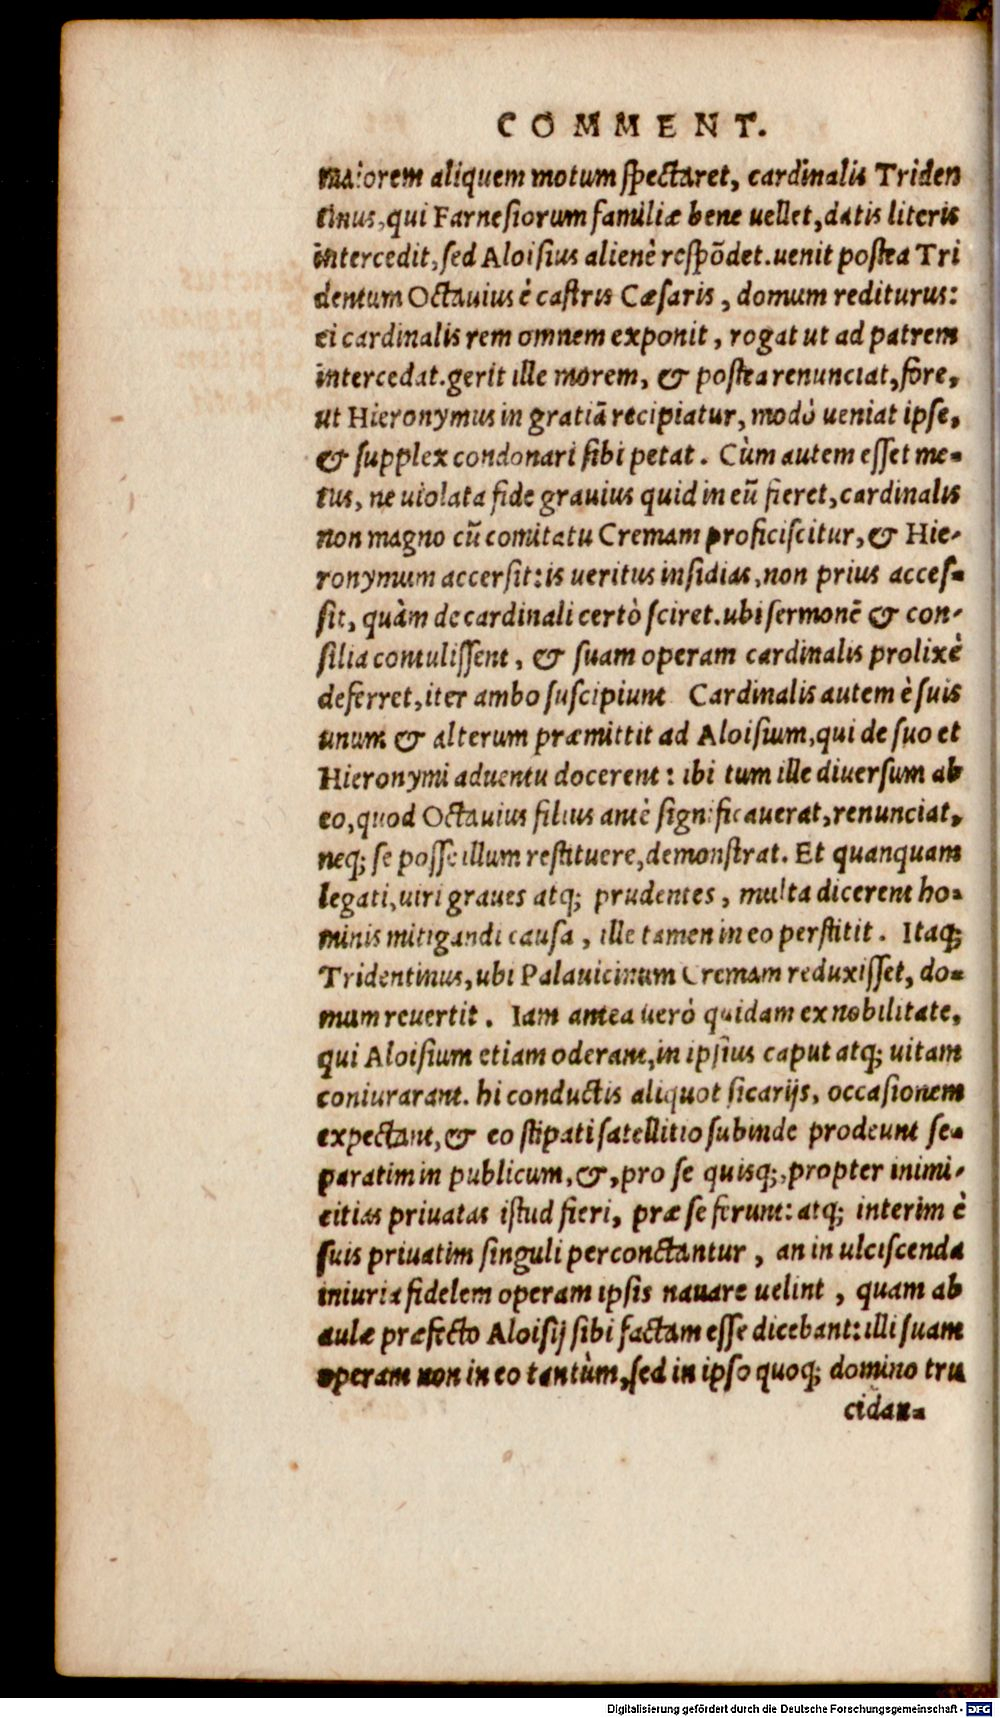 COMMENT.
maiorem aliquem motum spectaret, cardinalis Triden
tinus, qui Farnesiorum familiæ bene uellet, datis literis
intercedit, sed Aloisius alienè respõdet. uenit postea Tri
dentum Octauius è castris Cæsaris, domum rediturus:
ei cardinalis rem omnem exponit, rogat ut ad patrem
intercedat. gerit ille morem, & postea renunciat, fore,
ut Hieronymus in gratiã recipiatur, modò ueniat ipse,
& supplex condonari sibi petat. Cùm autem esset me-
tus, ne uiolata fide grauius quid in eũ fieret, cardinalis
non magno cũ comitatu Cremam proficiscitur, & Hie-
ronymum accersit: is ueritus insidias, non prius acces-
sit, quàm de cardinali certò sciret. ubi sermonẽ & con-
silia contulissent, & suam operam cardinalis prolixè
deferret, iter ambo suscipiunt Cardinalis autem è suis
unum & alterum præmittit ad Aloisium, qui de suo et
Hieronymi aduentu docerent: ibi tum ille diuersum ab
eo, quod Octauius filius antè significauerat, renunciat,
neq; se posse illum restituere, demonstrat. Et quanquam
legati, uiri graues atq; prudentes, multa dicerent ho-
minis mitigandi causa, ille tamen in eo perstitit. Itaq;
Tridentinus, ubi Palauicinum Cremam reduxisset, do-
mum reuertit. Iam antea uerò quidam ex nobilitate,
qui Aloisium etiam oderant, in ipsius caput atq; uitam
coniurarant. hi conductis aliquot sicarijs, occasionem
expectant, & eo stipati satellitio subinde prodeunt se-
paratim in publicum, &, pro se quisq;, propter inimi-
citias priuatas istud fieri, præ se ferunt: atq; interim è
suis priuatim singuli percontantur, an in ulciscenda
iniuria fidelem operam ipsis nauare uelint, quam ab
aulæ præfecto Aloisij sibi factam esse dicebant: illi suam
operam non in eo tantùm, sed in ipso quoq; domino tru
cidan-
Digitalisierung gefördert durch die Deutsche Forschungsgemeinschaft - DFG